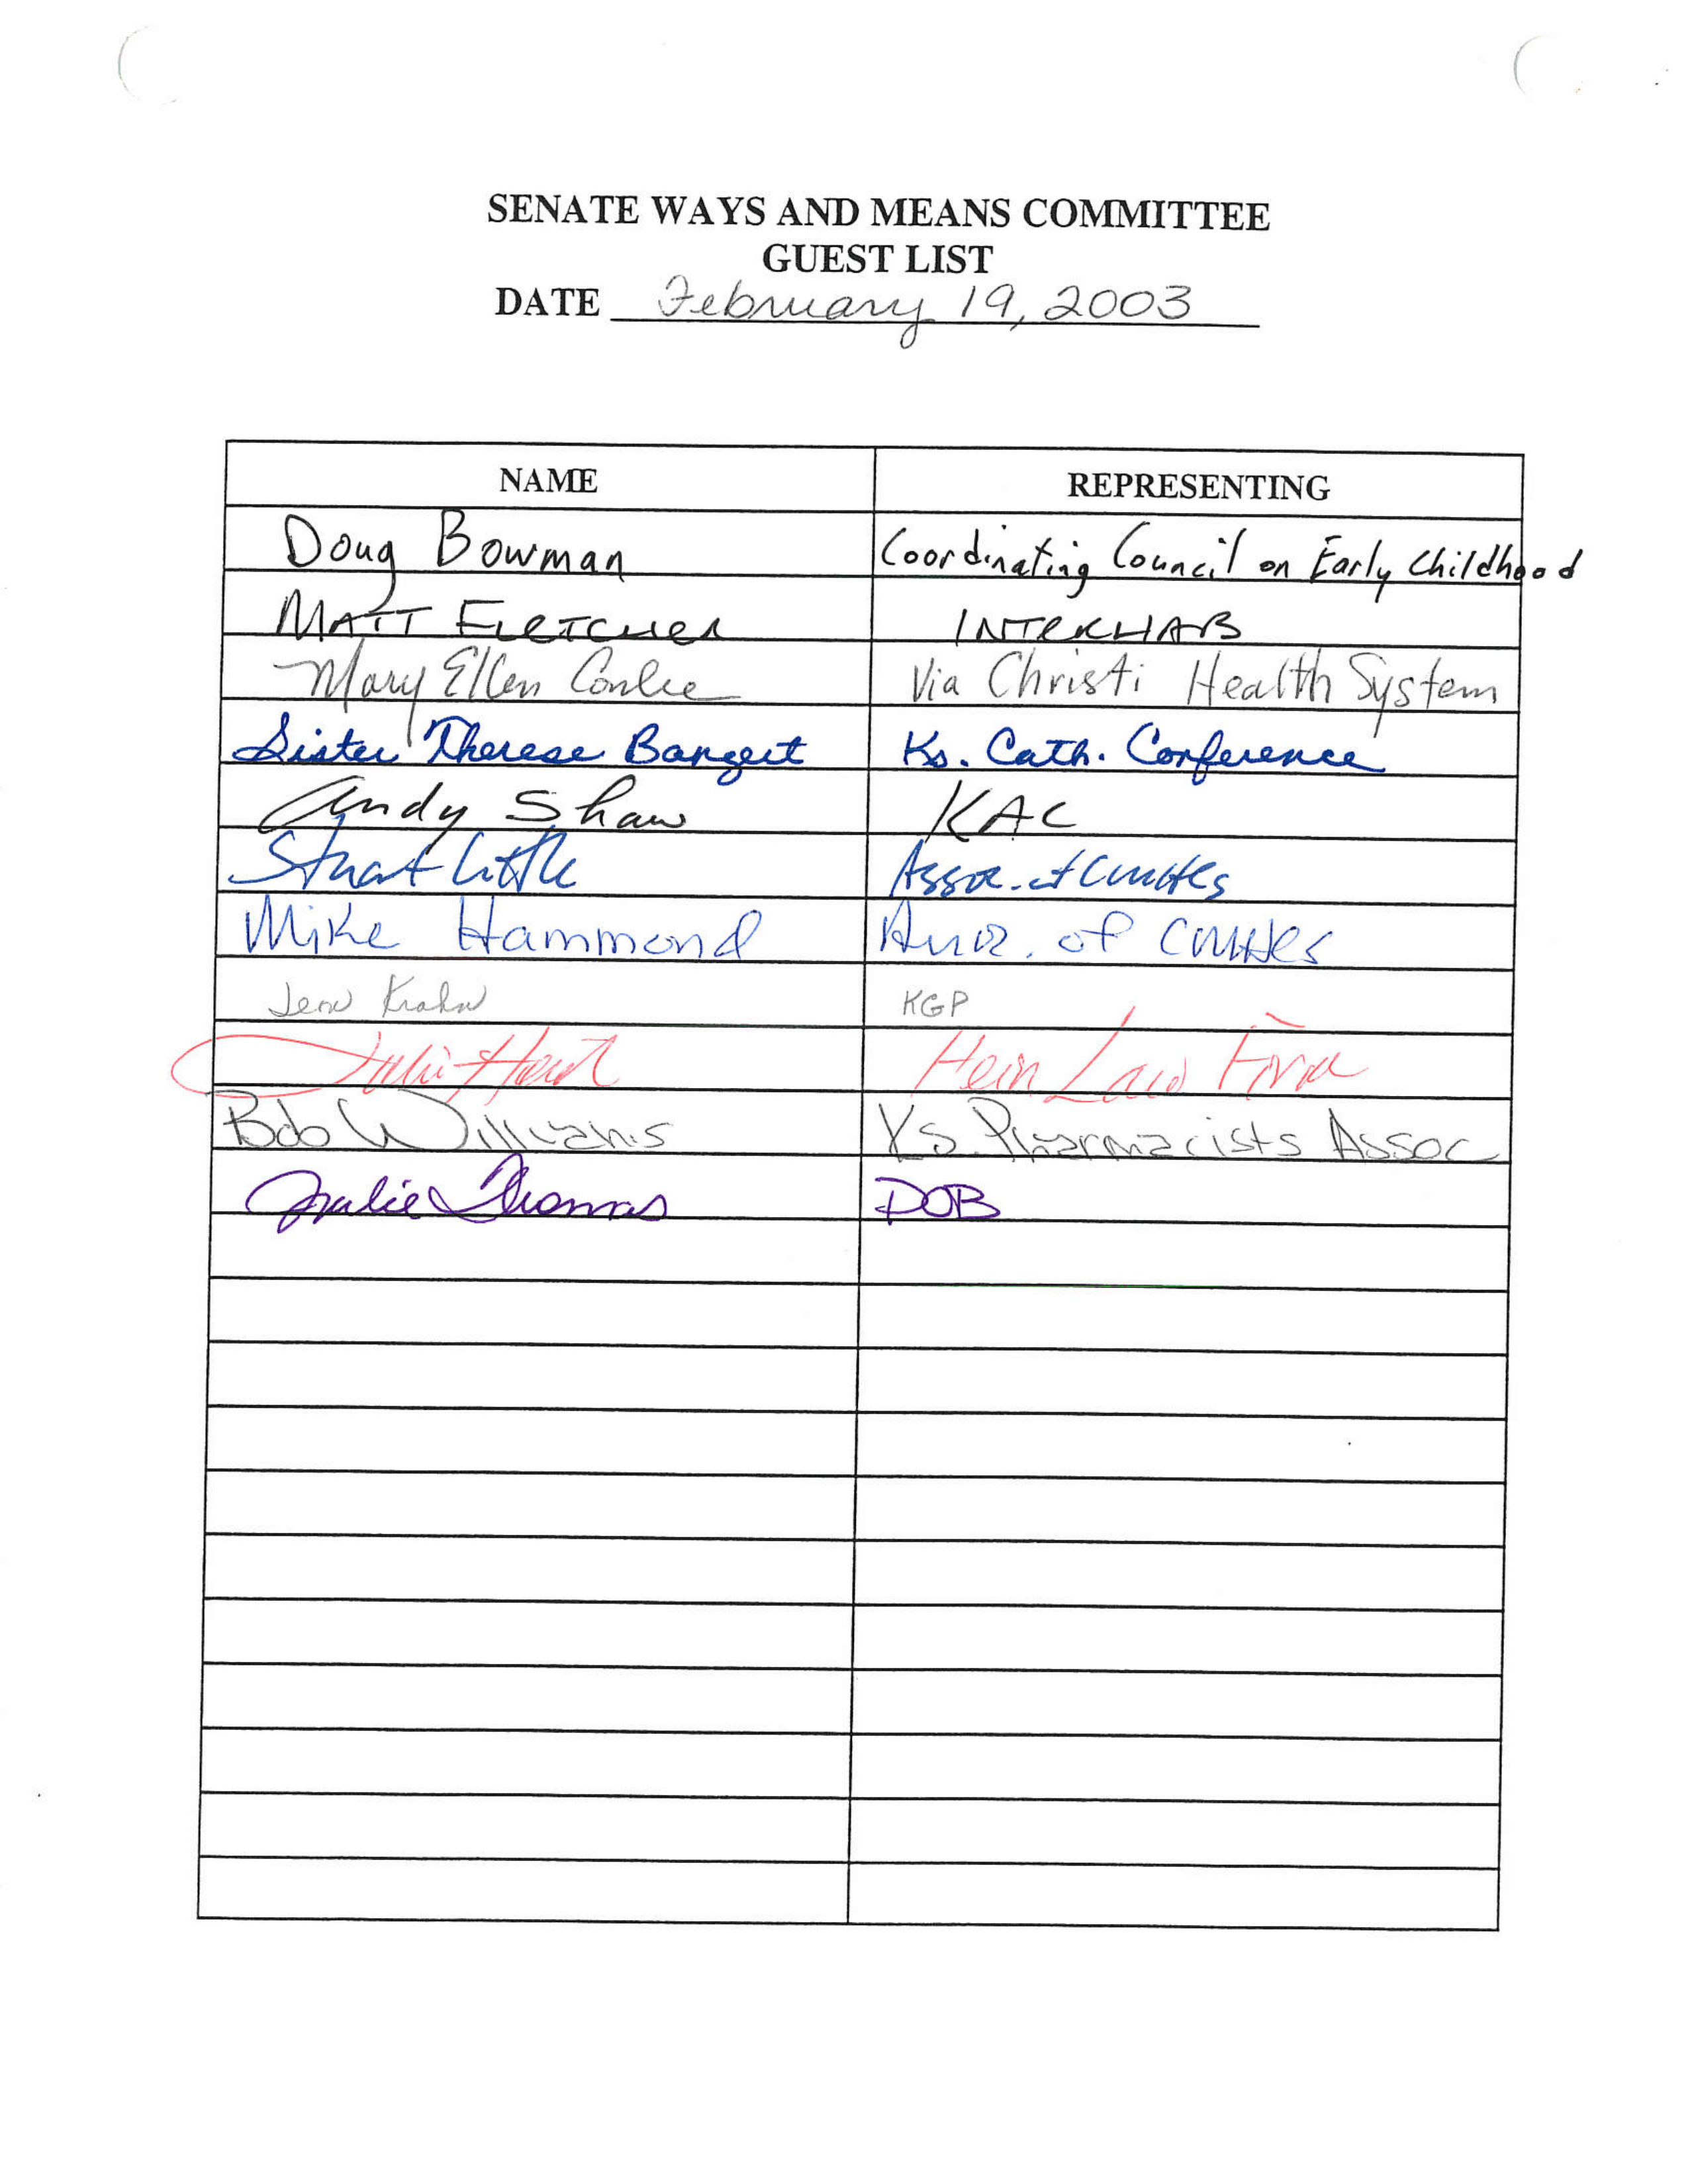 SENATE WAYS AND MEANS COMMITTEE
GUEST LIST
DATE February 19, 2003
NAME REPRESENTING
Doug Bowman Coordinating Council on Early Childhood
MATT FLETCHER INTERHAB
Mary Ellen Conlee Via Christi Health System
Sister Therese Bangert Ks. Cath. Conference
Andy Shaw KAC
Stuart Little Assoc. of CMHCs
Mike Hammond Assoc. of CMHCs
Krahn KGP
Julie Hein Hein Law Firm
Bob Williams KS. Pharmacists Assoc
Julie Thomas DOB